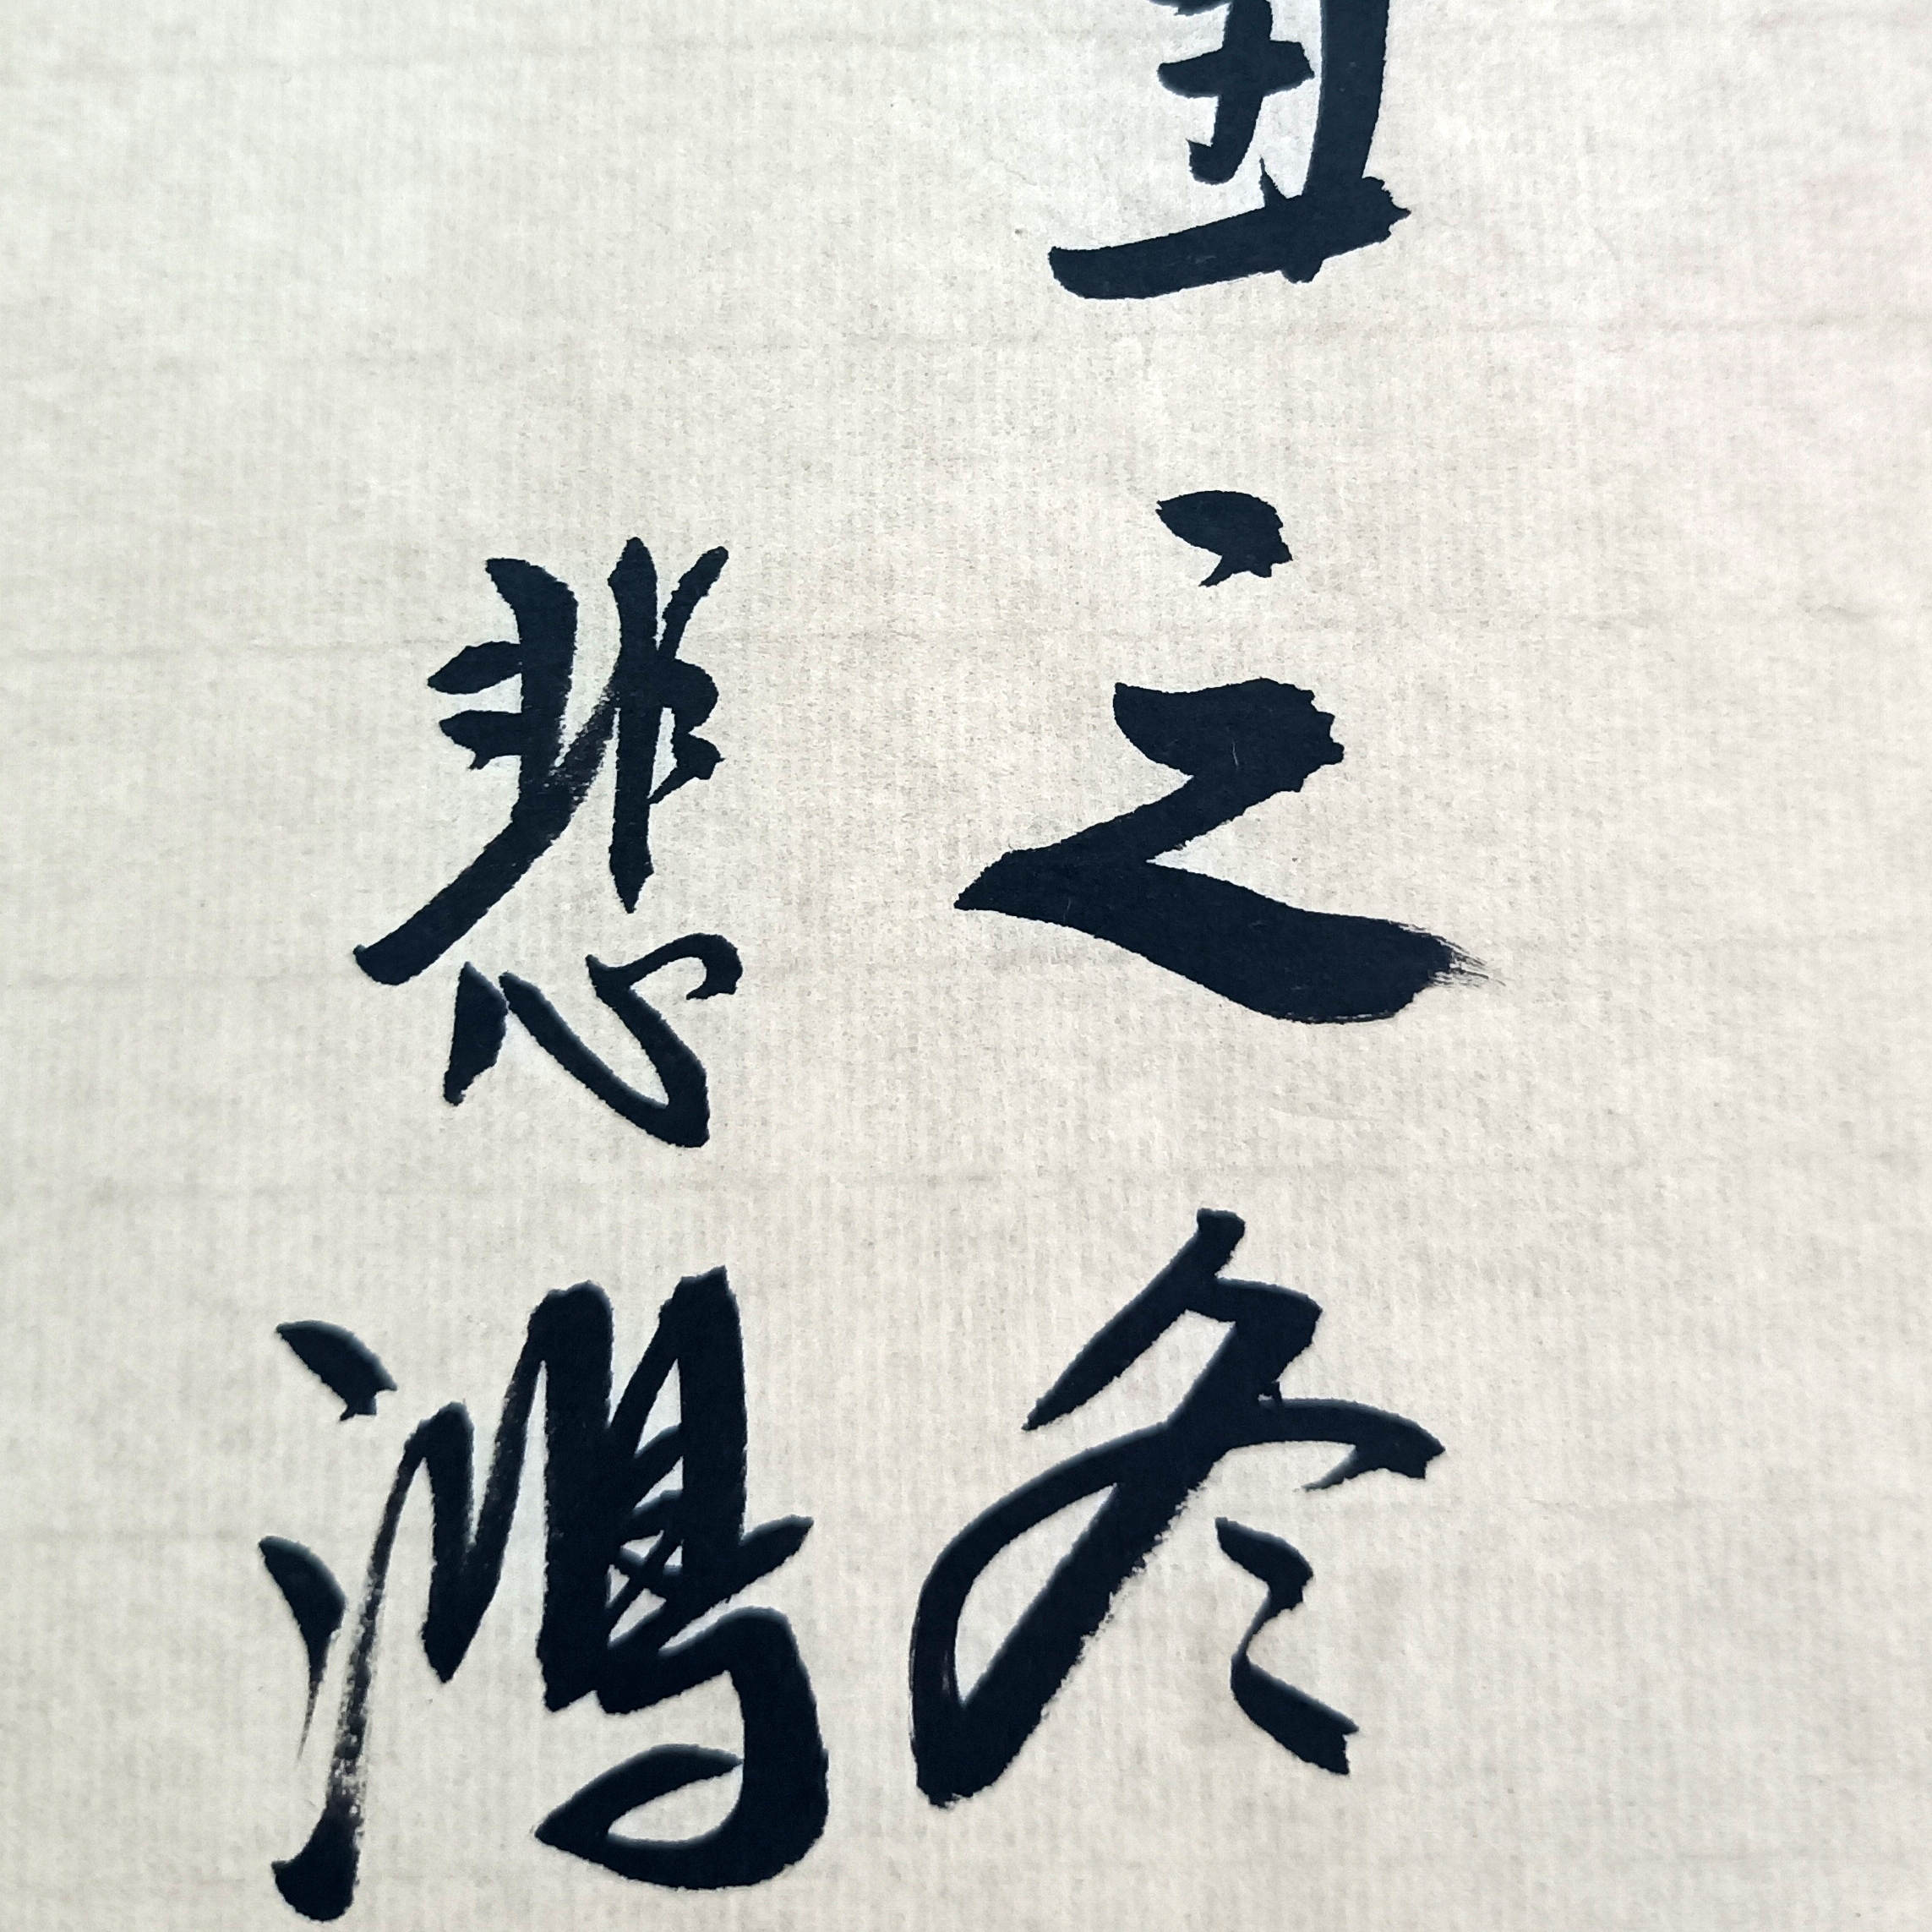 丑之冬
悲鴻